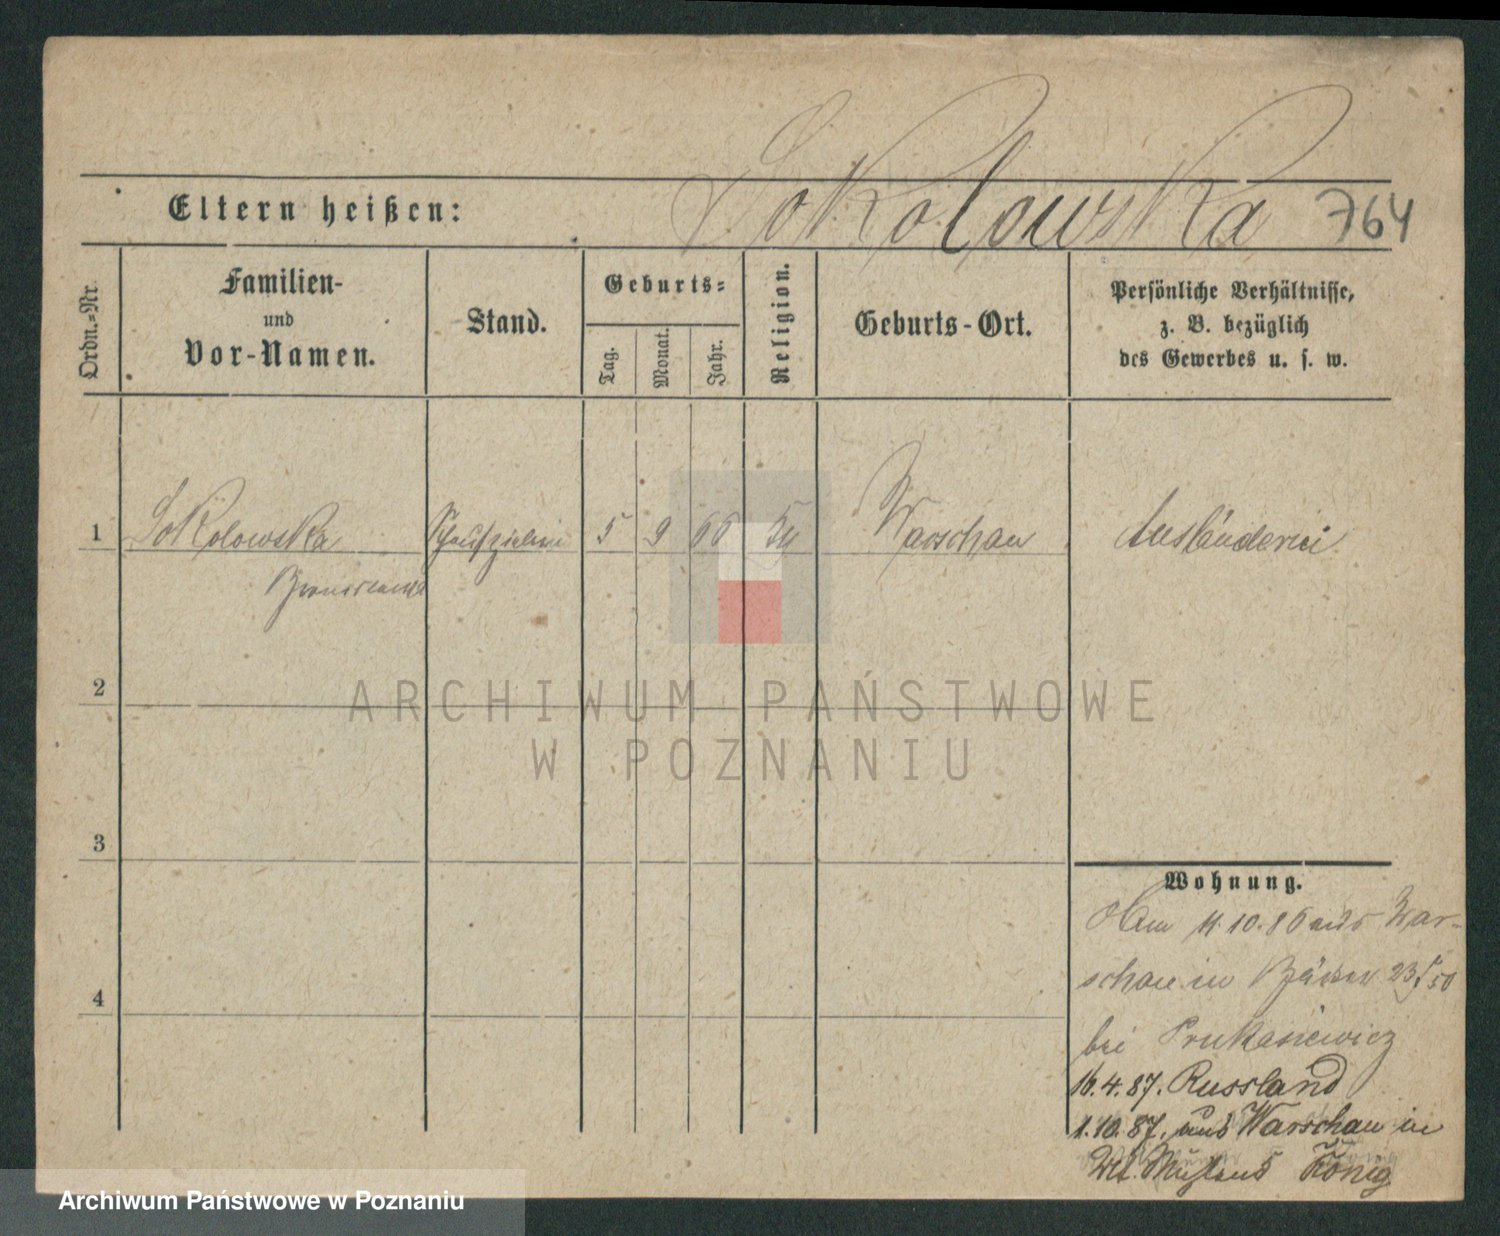 Sokolowska 764
Eltern heißen:
Ordn.-Nr.
Familien-
und
Vor-Namen.
Stand.
Geburts-
Tag.
Monat.
Jahr.
Religion.
Geburts-Ort.
Persönliche Verhältnisse,
z. B. bezüglich
des Gewerbes u. s. w.
1 Sokolowska Schauspielerin 5 9 66 Warschau Ausländerin
Bronislawa
2
ARCHIWUM PAŃSTWOWE
W POZNANIU
3
Wohnung.
Am 11.10.86 aus War-
schau in 23
bei
16.4.87. Russland
1.10.87. aus Warschau in
König
4
Archiwum Państwowe w Poznaniu